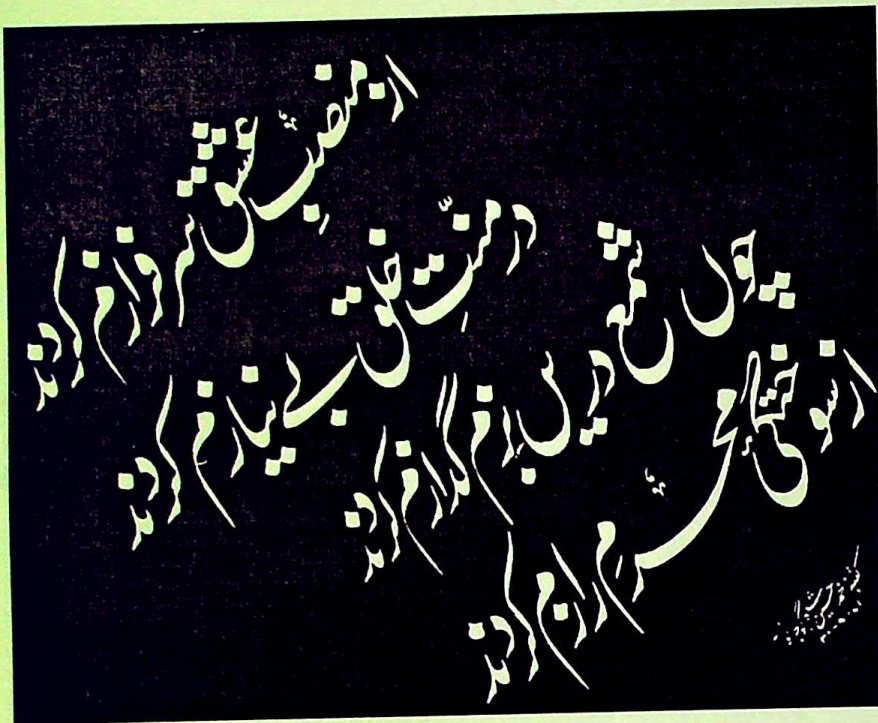 از منصبِ عشق سرفرازم کردند
در منّتِ خلق بے نیازم کردند
چوں شمع دریں بزم گدازم کردند
از سوختگی محرمِ رازم کردند